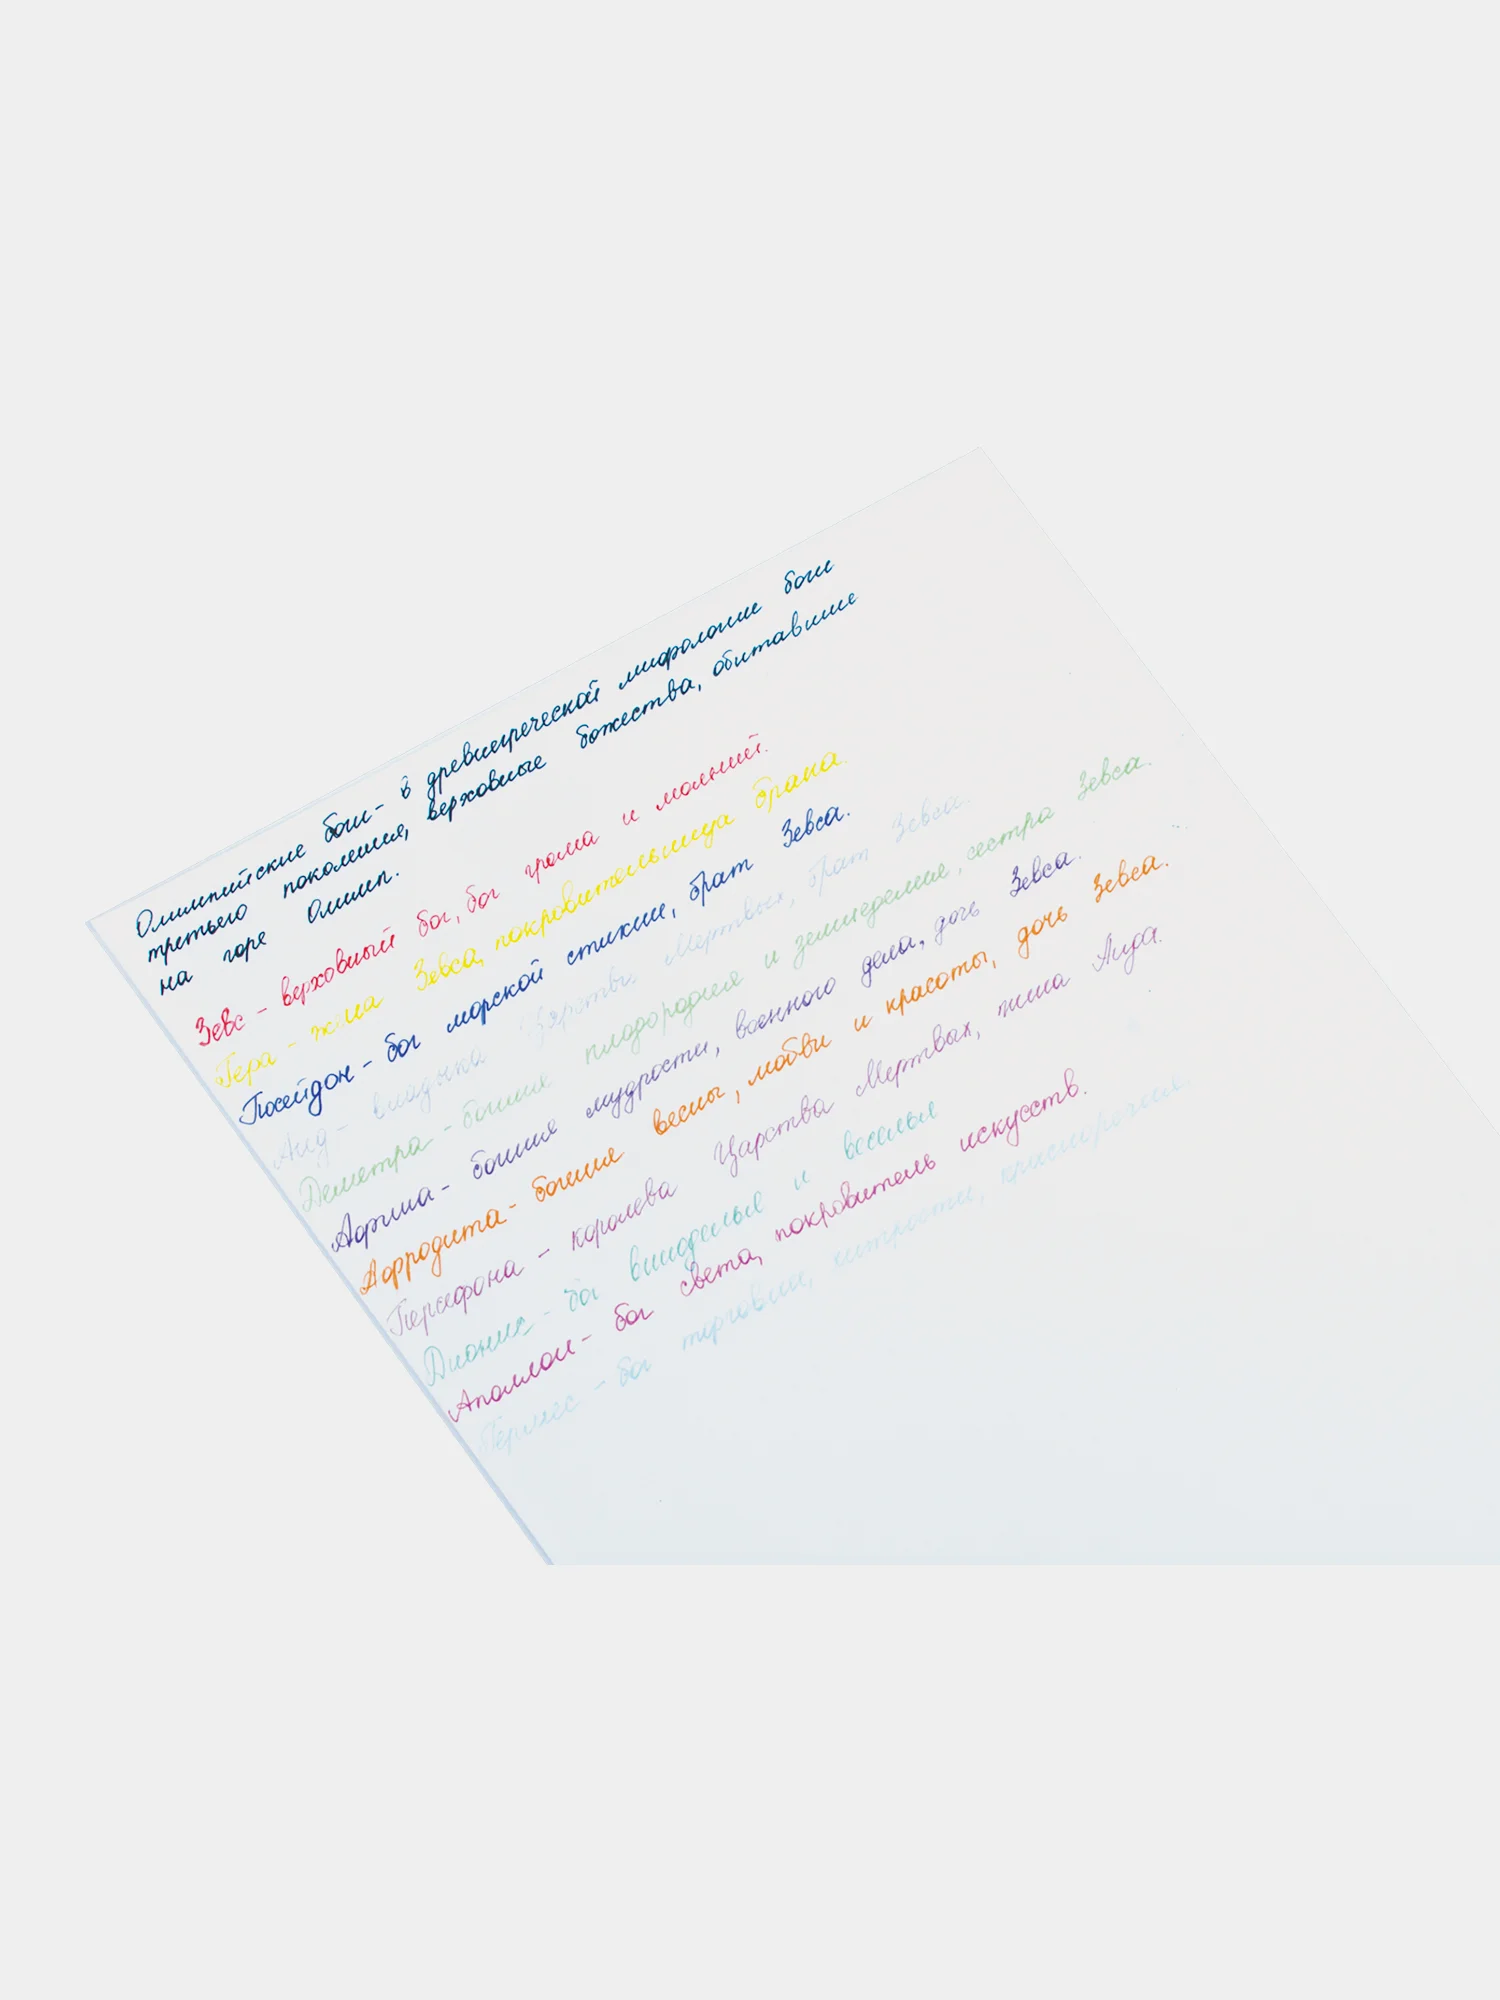 Олимпийские боги - в древнегреческой мифологии боги
третьего поколения, верховные божества, обитавшие
на горе Олимп.
Зевс - верховный бог, бог грома и молний.
Гера - жена Зевса, покровительница брака.
Посейдон - бог морской стихии, брат Зевса.
Аид - владыка Царства Мертвых, брат Зевса.
Деметра - богиня плодородия и земледелие, сестра Зевса.
Афина - богиня мудрости, военного дела, дочь Зевса.
Афродита - богиня весны, любви и красоты, дочь Зевса.
Персефона - королева Царства Мертвых, жена Аида.
Дионис - бог виноделья и веселья
Аполлон - бог света, покровитель искусств.
Гермес - бог торговли, хитрости, красноречия.